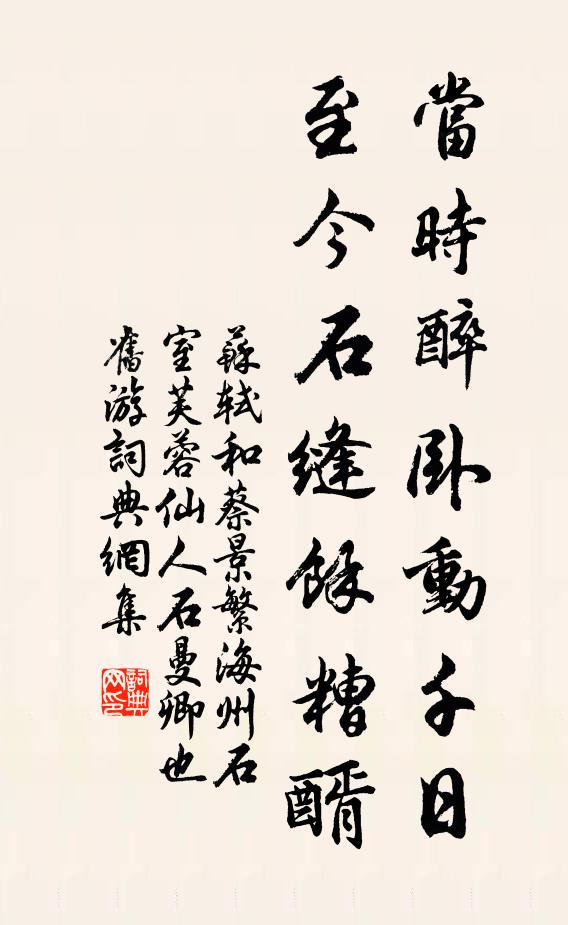 當時醉卧動千日
至今石縫餘糟醑
蘇軾和蔡景繁海州石
室芙蓉仙人石曼卿也
舊游詞典網集
詞典
网印